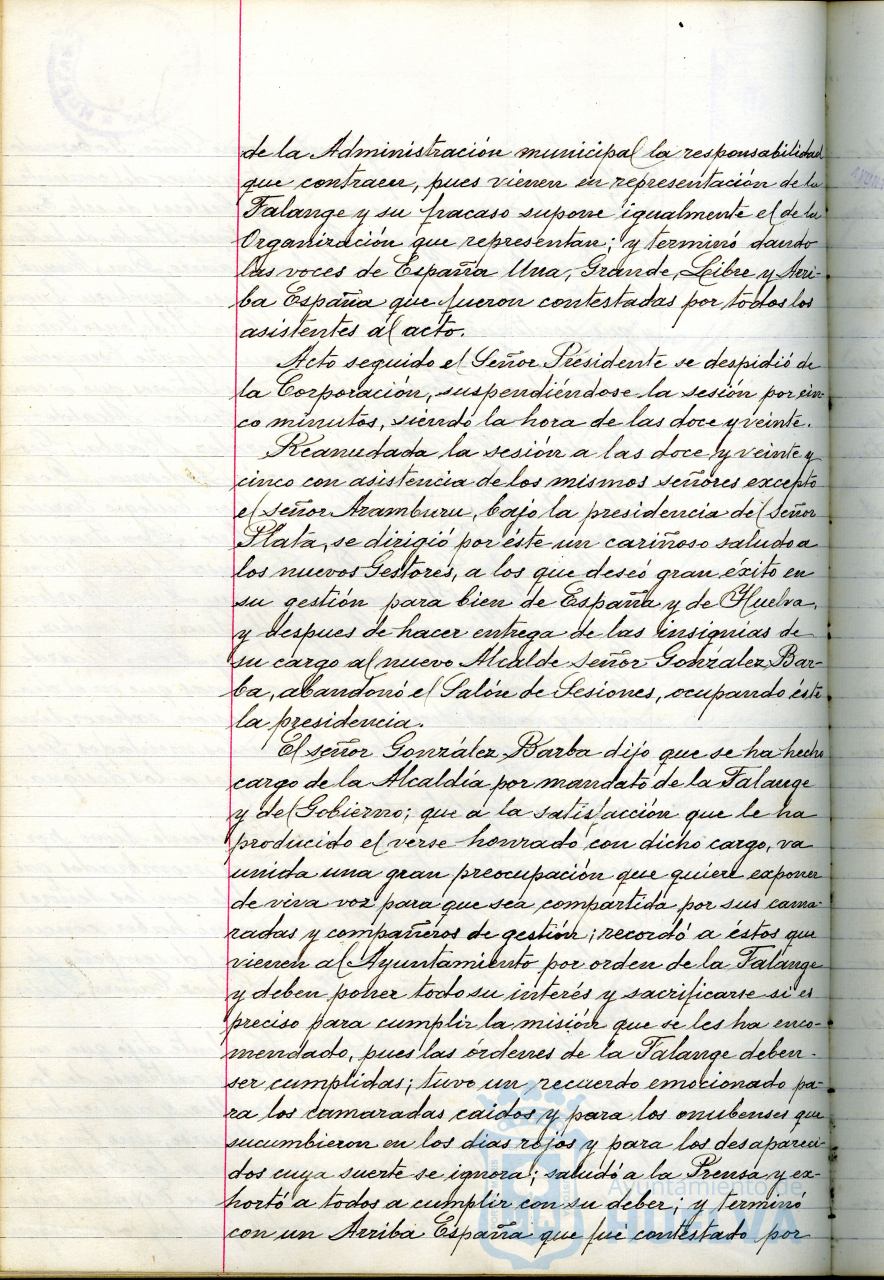 de la Administración municipal la responsabilidad
que contraen, pues vienen en representación de la
Falange y su fracaso supone igualmente el de la
Organización que representan; y terminó dando
las voces de España Una, Grande, Libre y Arri-
ba España que fueron contestadas por todos los
asistentes al acto.
Acto seguido el Señor Presidente se despidió de
la Corporación, suspendiéndose la sesión por cin-
co minutos, siendo la hora de las doce y veinte.
Reanudada la sesión a las doce y veinte y
cinco con asistencia de los mismos señores excepto
el señor Aramburu, bajo la presidencia del Señor
Plata, se dirigió por éste un cariñoso saludo a
los nuevos Gestores, a los que deseó gran éxito en
su gestión para bien de España y de Huelva,
y despues de hacer entrega de las insignias de
su cargo al nuevo Alcalde señor González Bar-
ba, abandonó el Salón de Sesiones, ocupando éste
la presidencia.
El señor González Barba dijo que se ha hecho
cargo de la Alcaldía por mandato de la Falange
y del Gobierno; que a la satisfacción que le ha
producido el verse honrado con dicho cargo, va
unida una gran preocupación que quiere exponer
de viva voz para que sea compartida por sus cama-
radas y compañeros de gestión; recordó a éstos que
vienen al Ayuntamiento por orden de la Falange
y deben poner todo su interés y sacrificarse si es
preciso para cumplir la misión que se les ha enco-
mendado, pues las órdenes de la Falange deben
ser cumplidas; tuvo un recuerdo emocionado pa-
ra los camaradas caidos y para los onubenses que
sucumbieron en los dias rojos y para los desapareci-
dos cuya suerte se ignora; saludó a la Prensa y ex-
hortó a todos a cumplir con su deber; y terminó
con un Arriba España que fué contestado por
Ayuntamiento de
HUELVA